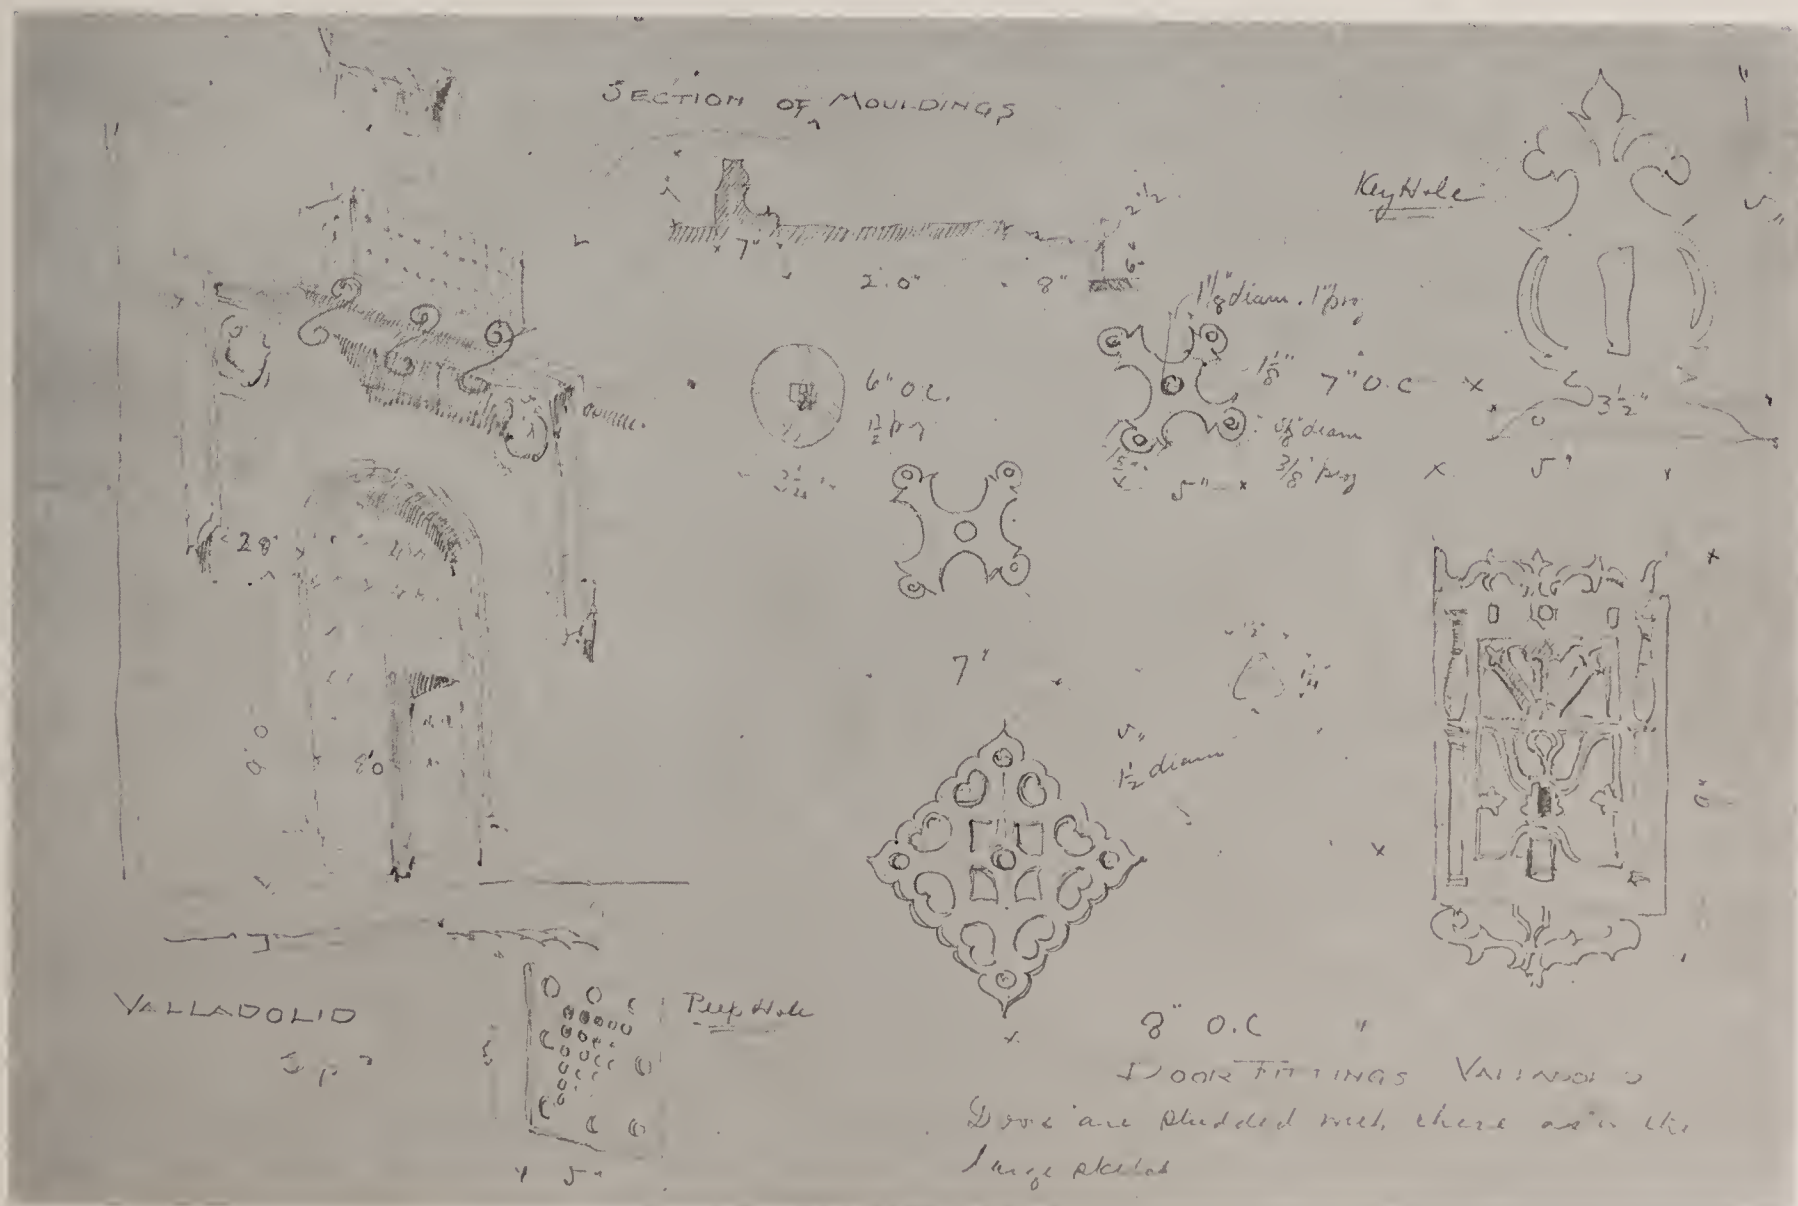 SECTION OF MOULDINGS
7"
2'.0"
8"
6"
2 1/2
KeyHole
1 1/8" diam. 1" proj
1 1/8"
7" O.C
6" O.C.
1 1/2 proj
3 1/2"
5/8" diam
3/8" proj
5"
5"
7"
5"
1 1/2 diam
8'.0
VALLADOLID
Peep Hole
5"
8" O.C
DOOR FITTINGS VALLADOLID
Doors are studded with these as in the
large sketch